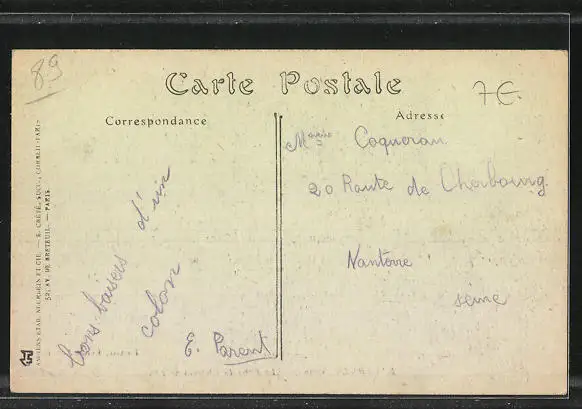 89
Carte Postale
7€
Correspondance
Adresse
bons baisers d'un
colon
E. Parent
Coquerau
20 Route de Cherbourg
Nanterre
seine
ANCIENS ETAB. NEURDEIN ET CIE. — E. CRÉTÉ, SUCC., CORBEIL-PARIS
52, AV. DE BRETEUIL. — PARIS